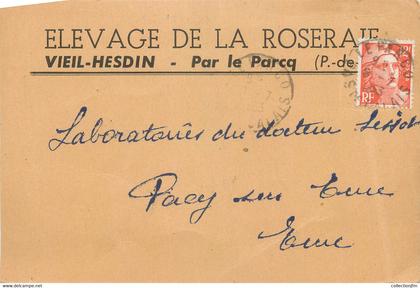 ELEVAGE DE LA ROSERAIE
VIEIL-HESDIN - Par le Parcq (P.-de-
RF
Laboratoires du docteur
Pacy sur Eure
Eure
www.collectionjfm.com